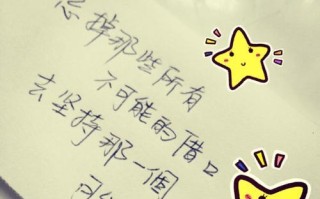 忘掉那些所有
不可能的借口
去坚持那一個
可